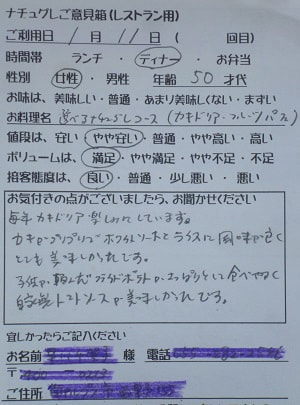 ナチュグしご意見箱(レストラン用)
ご利用日 1月 11日( 回目)
時間帯 ランチ・ディナー・お弁当
性別 女性・男性 年齢 50才代
お味は、美味しい・普通・あまり美味しくない・まずい
お料理名 選べるナチュグしコース(カキドリア・フルーツパフェ)
値段は、安い・やや安い・普通・やや高い・高い
ボリュームは、満足・やや満足・やや不足・不足
接客態度は、良い・普通・少し悪い・悪い
お気付きの点がございましたら、お聞かせください
毎年カキドリア楽しみにしています。
カキがプリプリでホワイトソースとライスに風味が良く
とても美味しかったです。
子供が頼んだフライドポテトがさっぱりとして食べやすく
自家製トマトソースが美味しかったです。
宜しかったらご記入ください
お名前 様 電話
〒
ご住所